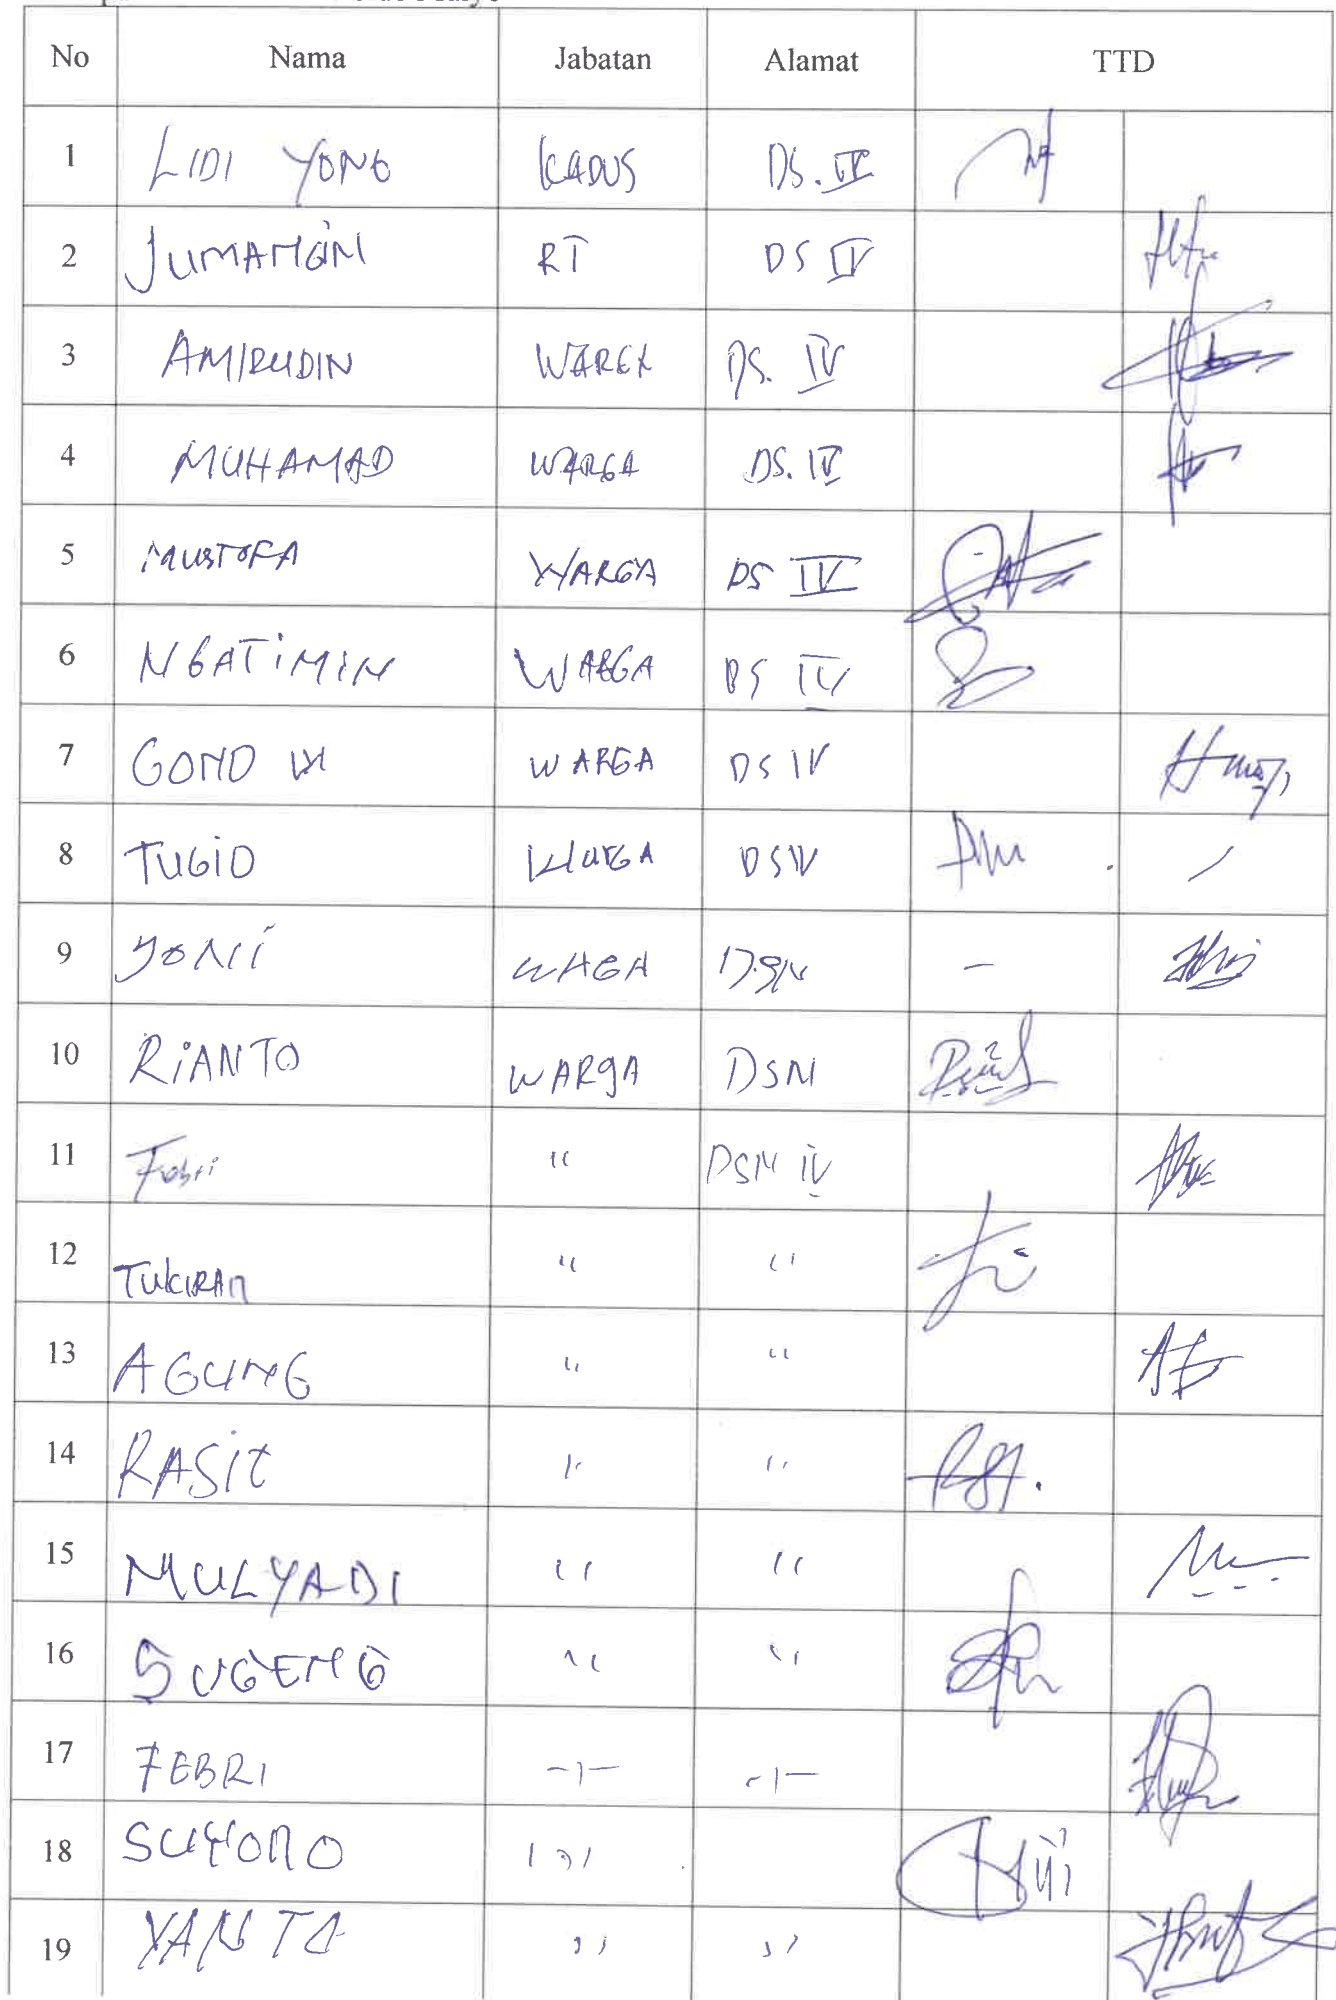 No Nama Jabatan Alamat TTD
1 LIDI YONG KADUS DS. IV
2 JUMANGIN RT DS IV
3 AMIRUDIN DS. IV
4 MUHAMAD WARGA DS. IV
5 MUSTOFA WARGA DS IV
6 NGATIMIN WARGA DS IV
7 GONO WARGA DS IV
8 TUGIO WARGA DS IV
9 YONI WAGA
10 RIANTO WARGA DSN
11 Febri " DSN IV
12 TUKIRAN " "
13 AGUNG " "
14 RASIT " "
15 MULYADI " "
16 SUGENG " "
17 FEBRI -1- -1-
18 SUYONO
19 YANTO " "